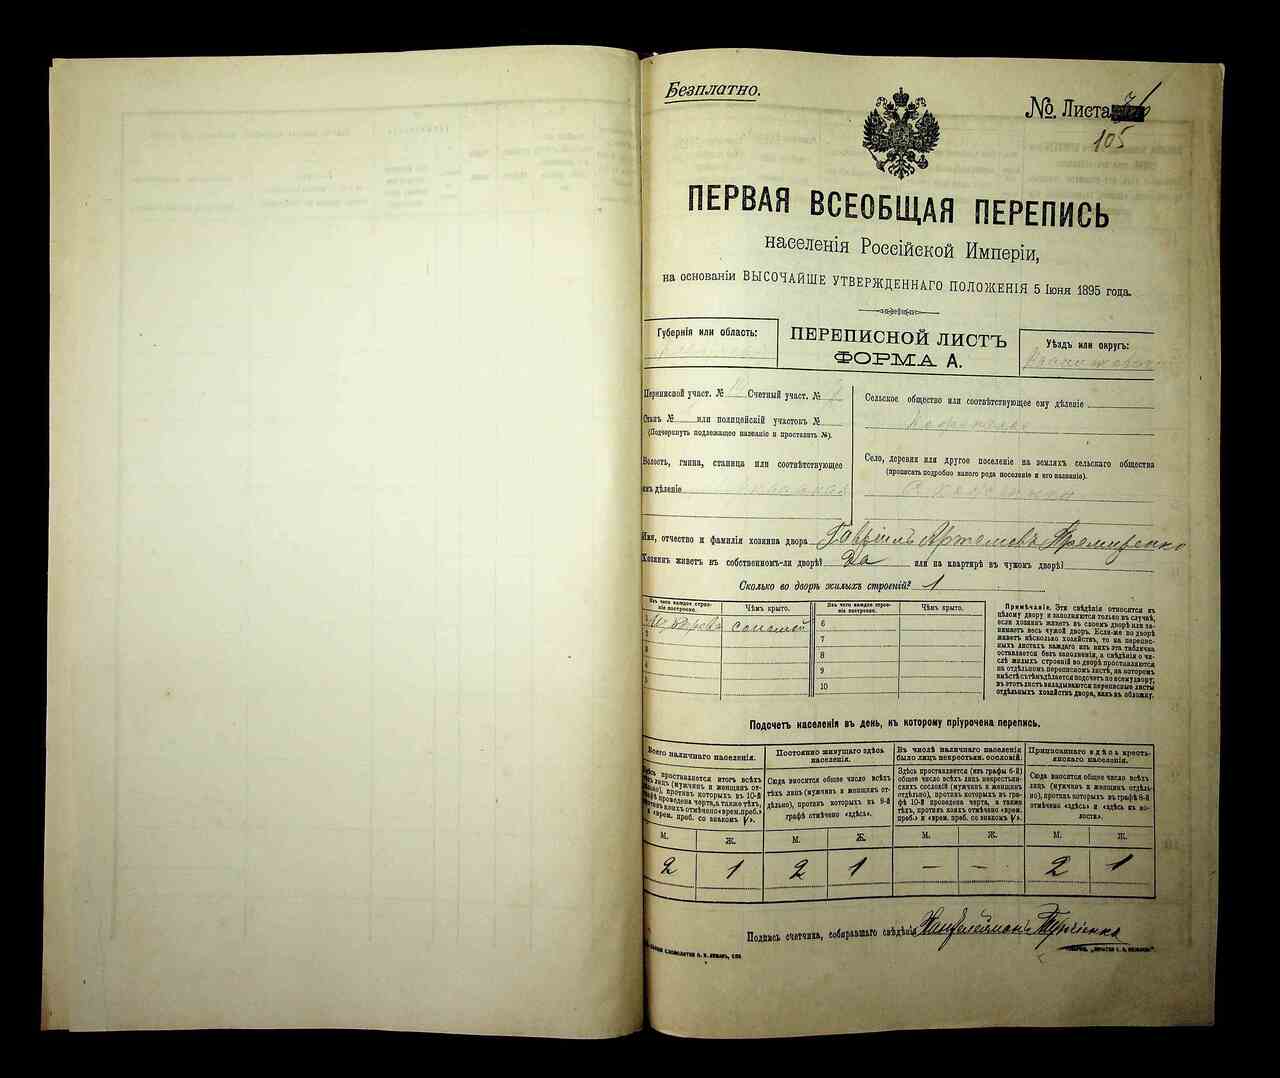 Безплатно.
№ Листа
105
ПЕРВАЯ ВСЕОБЩАЯ ПЕРЕПИСЬ
населенія Россійской Имперіи,
на основаніи ВЫСОЧАЙШЕ УТВЕРЖДЕННАГО ПОЛОЖЕНІЯ 5 Іюня 1895 года.
Губернія или область:
ПЕРЕПИСНОЙ ЛИСТЪ
ФОРМА А.
Уѣздъ или округъ:
Переписной участ. № Счетный участ. №
Станъ № или полицейскій участокъ №
(Подчеркнуть подлежащее названіе и проставить №).
Волость, гмина, станица или соотвѣтствующее
имъ дѣленіе
Сельское общество или соотвѣтствующее ему дѣленіе
Село, деревня или другое поселеніе на земляхъ сельскаго общества
(прописать подробно какого рода поселеніе и его названіе).
Имя, отчество и фамилія хозяина двора Гавріилъ Артемовъ
Хозяинъ живетъ въ собственномъ-ли дворѣ? Да или на квартирѣ въ чужомъ дворѣ?
Сколько во дворѣ жилыхъ строеній? 1
Изъ чего каждое строеніе построено.
Чѣмъ крыто.
Изъ чего каждое строеніе построено.
Чѣмъ крыто.
Изъ дерева соломой
2
3
4
5
6
7
8
9
10
Примѣчаніе. Эти свѣдѣнія относятся къ
цѣлому двору и заполняются только въ случаѣ,
если хозяинъ живетъ въ своемъ дворѣ или за-
нимаетъ весь чужой дворъ. Если-же во дворѣ
живетъ нѣсколько хозяйствъ, то на перепис-
ныхъ листахъ каждаго изъ нихъ эта табличка
оставляется безъ заполненія, а свѣдѣнія о чи-
слѣ жилыхъ строеній во дворѣ проставляются
на отдѣльномъ переписномъ листѣ, на которомъ
вмѣстѣ съ тѣмъ дѣлается подсчетъ по всему двору;
въ этотъ листъ вкладываются переписные листы
отдѣльныхъ хозяйствъ двора, какъ въ обложку.
Подсчетъ населенія въ день, къ которому пріурочена перепись.
Всего наличнаго населенія.
Здѣсь проставляется итогъ всѣхъ
тѣхъ лицъ (мужчинъ и женщинъ от-
дѣльно), противъ которыхъ въ 10-й
графѣ проведена черта, а также тѣхъ,
противъ коихъ отмѣчено «врем. преб.»
и «врем. преб. со знакомъ V».
Постоянно живущаго здѣсь
населенія.
Сюда вносится общее число всѣхъ
тѣхъ лицъ (мужчинъ и женщинъ от-
дѣльно), противъ которыхъ въ 9-й
графѣ отмѣчено «здѣсь».
Въ числѣ наличнаго населенія
было лицъ некрестьян. сословій.
Здѣсь проставляется (изъ графы 6-й)
общее число всѣхъ лицъ некрестьян-
скихъ сословій (мужчинъ и женщинъ
отдѣльно), противъ которыхъ въ гра-
фѣ 10-й проведена черта, а также
тѣхъ, противъ коихъ отмѣчено «врем.
преб.» и «врем. преб. со знакомъ V».
Приписаннаго здѣсь кресть-
янскаго населенія.
Сюда вносится общее число всѣхъ
лицъ (мужчинъ и женщинъ отдѣль-
но), противъ которыхъ въ графѣ 8-й
отмѣчено «здѣсь» и «здѣсь въ во-
лости».
М. Ж. М. Ж. М. Ж. М. Ж.
2 1 2 1 – – 2 1
Подпись счетчика, собиравшаго свѣдѣнія